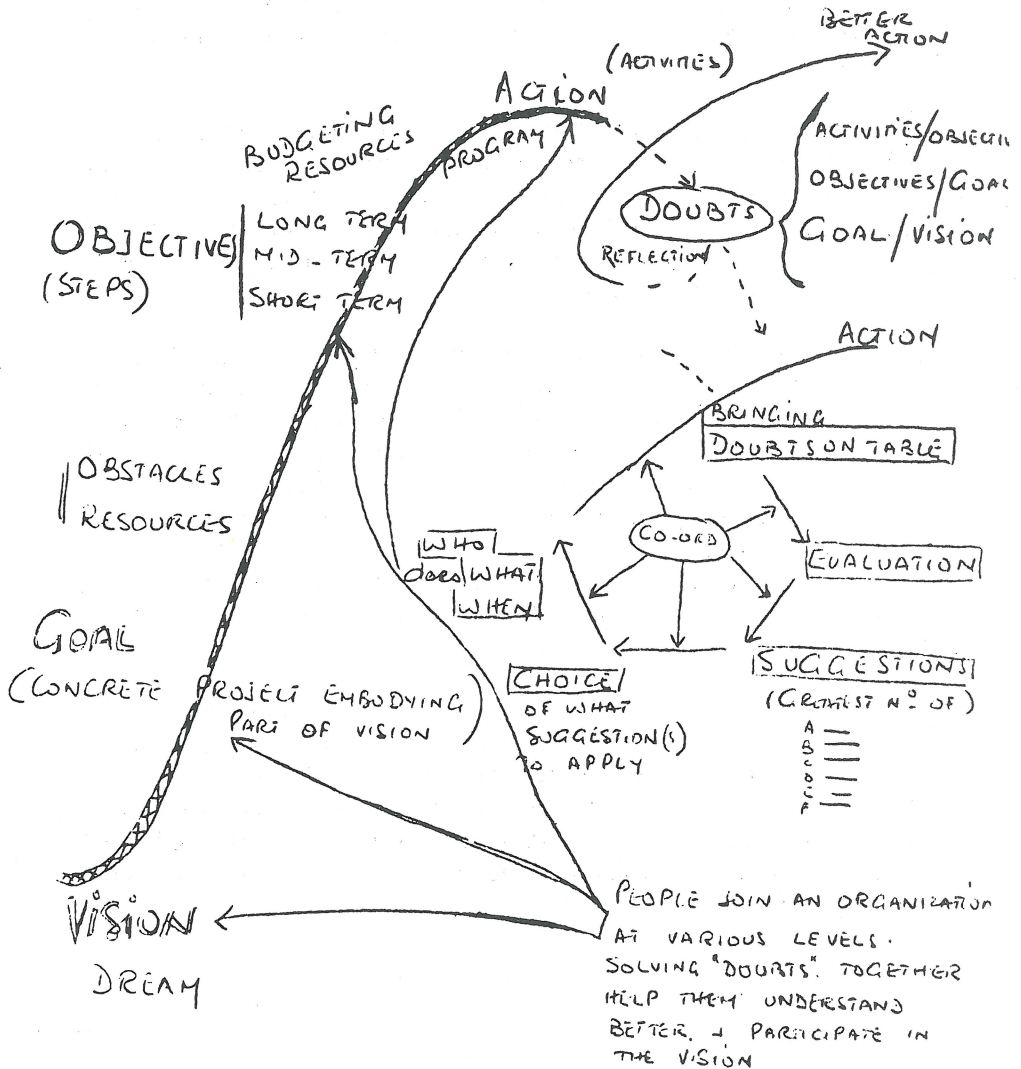 BETTER
ACTION
(ACTIVITIES)
ACTION
BUDGETING
RESOURCES
PROGRAM
ACTIVITIES/OBJECTI
OBJECTIVES/GOAL
GOAL/VISION
DOUBTS
REFLECTION
OBJECTIVES
(STEPS)
LONG TERM
MID-TERM
SHORT TERM
ACTION
BRINGING
DOUBTS ON TABLE
OBSTACLES
RESOURCES
CO-ORD
WHO
does WHAT
WHEN
EVALUATION
GOAL
(CONCRETE PROJECT EMBODYING
PART OF VISION)
CHOICE
OF WHAT
SUGGESTION(S)
TO APPLY
SUGGESTIONS
(GREATEST Nº OF)
A
B
C
D
E
F
VISION
DREAM
PEOPLE JOIN AN ORGANIZATION
AT VARIOUS LEVELS.
SOLVING "DOUBTS" TOGETHER
HELP THEM UNDERSTAND
BETTER, + PARTICIPATE IN
THE VISION